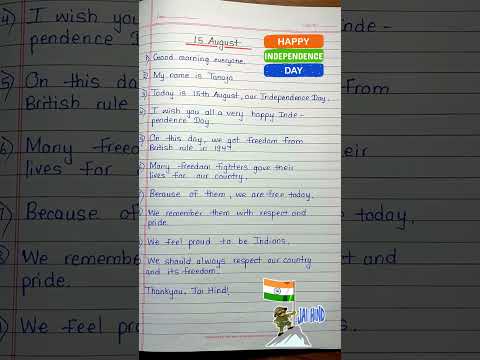 15 August
HAPPY
INDEPENDENCE
DAY
1) Good morning everyone.
2) My name is Tanuja
3) Today is 15th August, our Independence Day.
4) I wish you all a very happy Inde -
pendence Day.
5) On this day, we got freedom from
British rule in 1947
6) Many freedom fighters gave their
lives for our country.
7) Because of them, we are free today.
8) We remember them with respect and
pride.
9) We feel proud to be Indians.
We should always respect our country
and its freedom.
Thankyou, Jai Hind!
JAI HIND
4) I wish you
pendence D
5) On this day
British rule
6) Many freed
lives for
7) Because of
We remembe
pride.
We feel pro
Inde -
from
their
today.
ct and